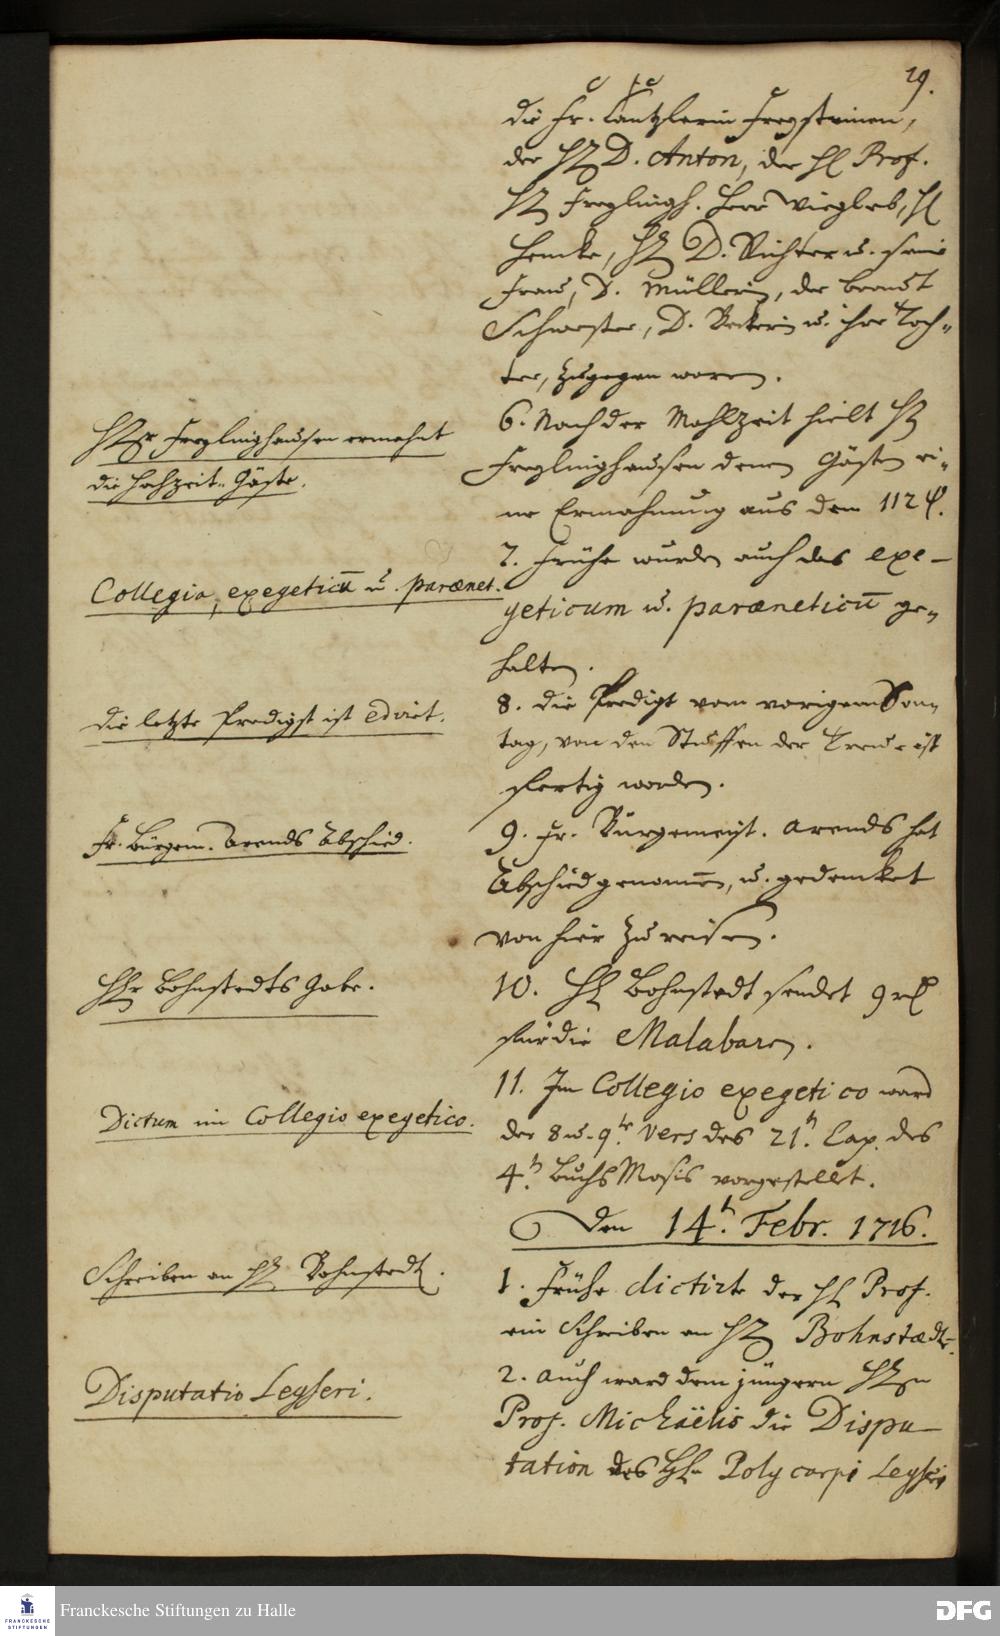 29.
die Fr. Cantzlerin Freysteinen,
der H. D. Anton, der H. Prof.
H. Freylingh. Herr Wiegleb, H.
Hencke, H. D. Richter u. seine
Frau, D. Müllerin, der Braut
Schwester, D. Beckerin u. ihre Toch-
ter, zugegen waren.
Hr. Freylinghausen ermahnt
die Hochzeit-Gäste.
6. Nach der Mahlzeit hielt H.
Freylinghausen denen Gästen ei-
ne Ermahnung aus dem 112 ψ.
Collegia, exegeticū u. parænet.
7. Frühe wurden auch das exe-
geticum u. paræneticū ge-
halten.
die letzte Predigt ist edirt.
8. die Predigt vom vorigem Son-
tag, von den Stuffen der Treue ist
fertig worden.
Fr. Bürgem. Arends Abschied.
9. Fr. Bürgemeist. Arends hat
Abschied genom̄en, u. gedencket
von hier zu reisen.
Hr. Bohnstedts Gabe.
10. H. Bohnstedt sendet 9 rl
für die Malabaren.
Dictum im Collegio exegetico.
11. Im Collegio exegetico ward
der 8 u. 9te Vers des 21. Cap. des
4. Buchs Mosis vorgestellt.
Den 14. Febr. 1716.
Schreiben an H. Bohnstedt.
1. Frühe dictirte der H. Prof.
ein Schreiben an H. Bohnstædt.
Disputatio Leyseri.
2. Auch ward dem jüngern H.
Prof. Michaëlis die Dispu-
tation des H. Polycarpi Leyseri
Franckesche Stiftungen zu Halle
FRANCKESCHE
STIFTUNGEN
DFG